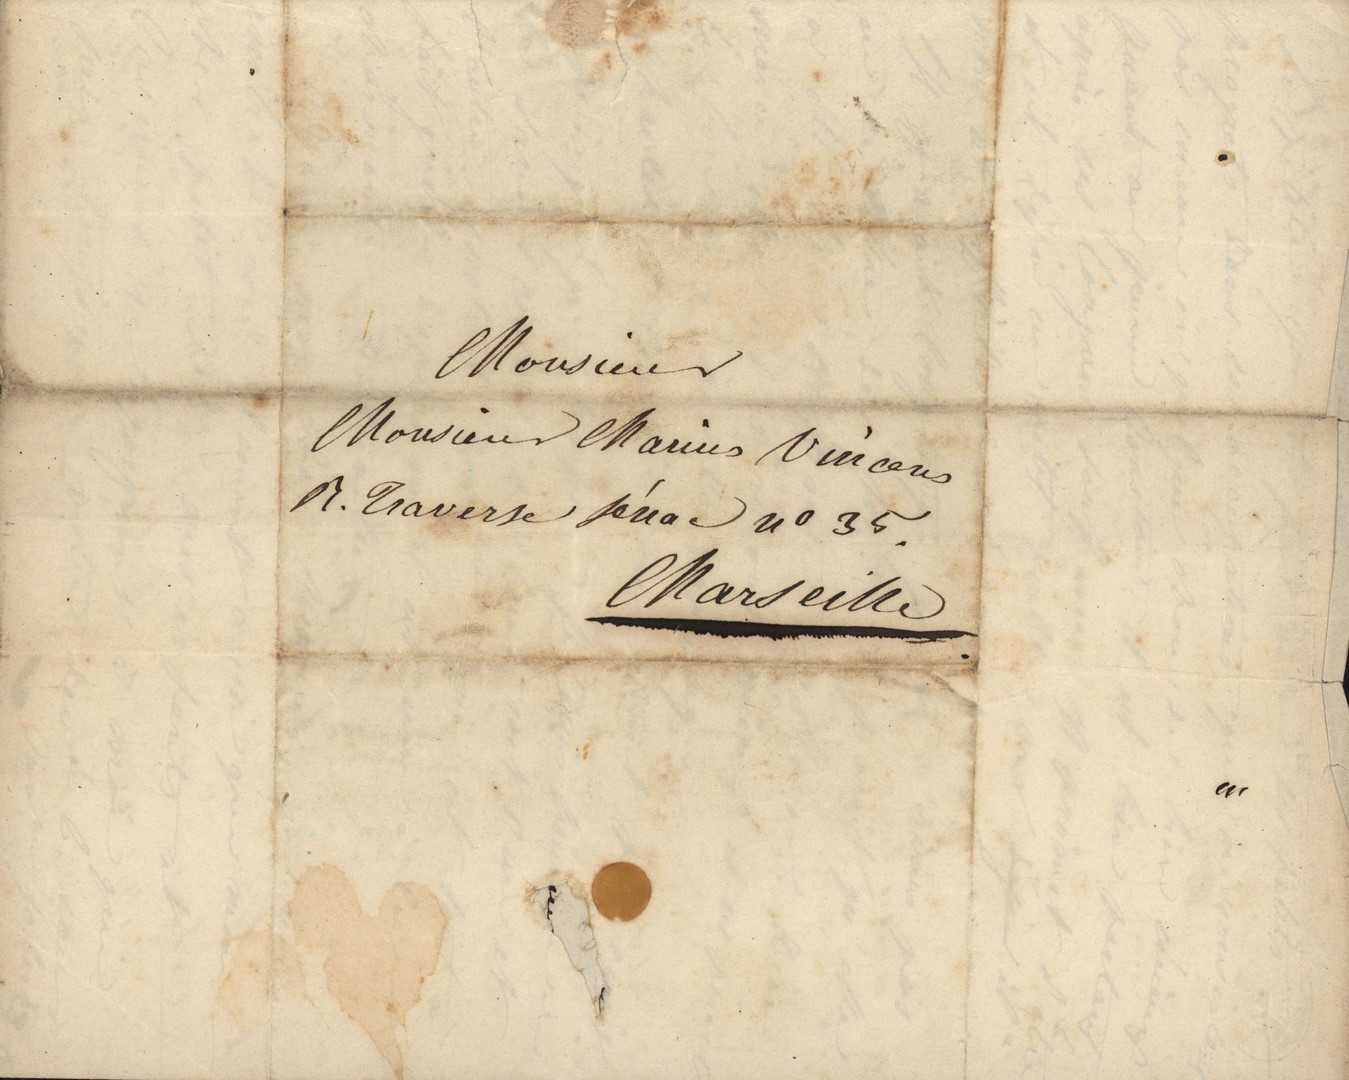 Monsieur
Monsieur Marius Vincens
R. Traverse Sénac nº 35.
Marseille